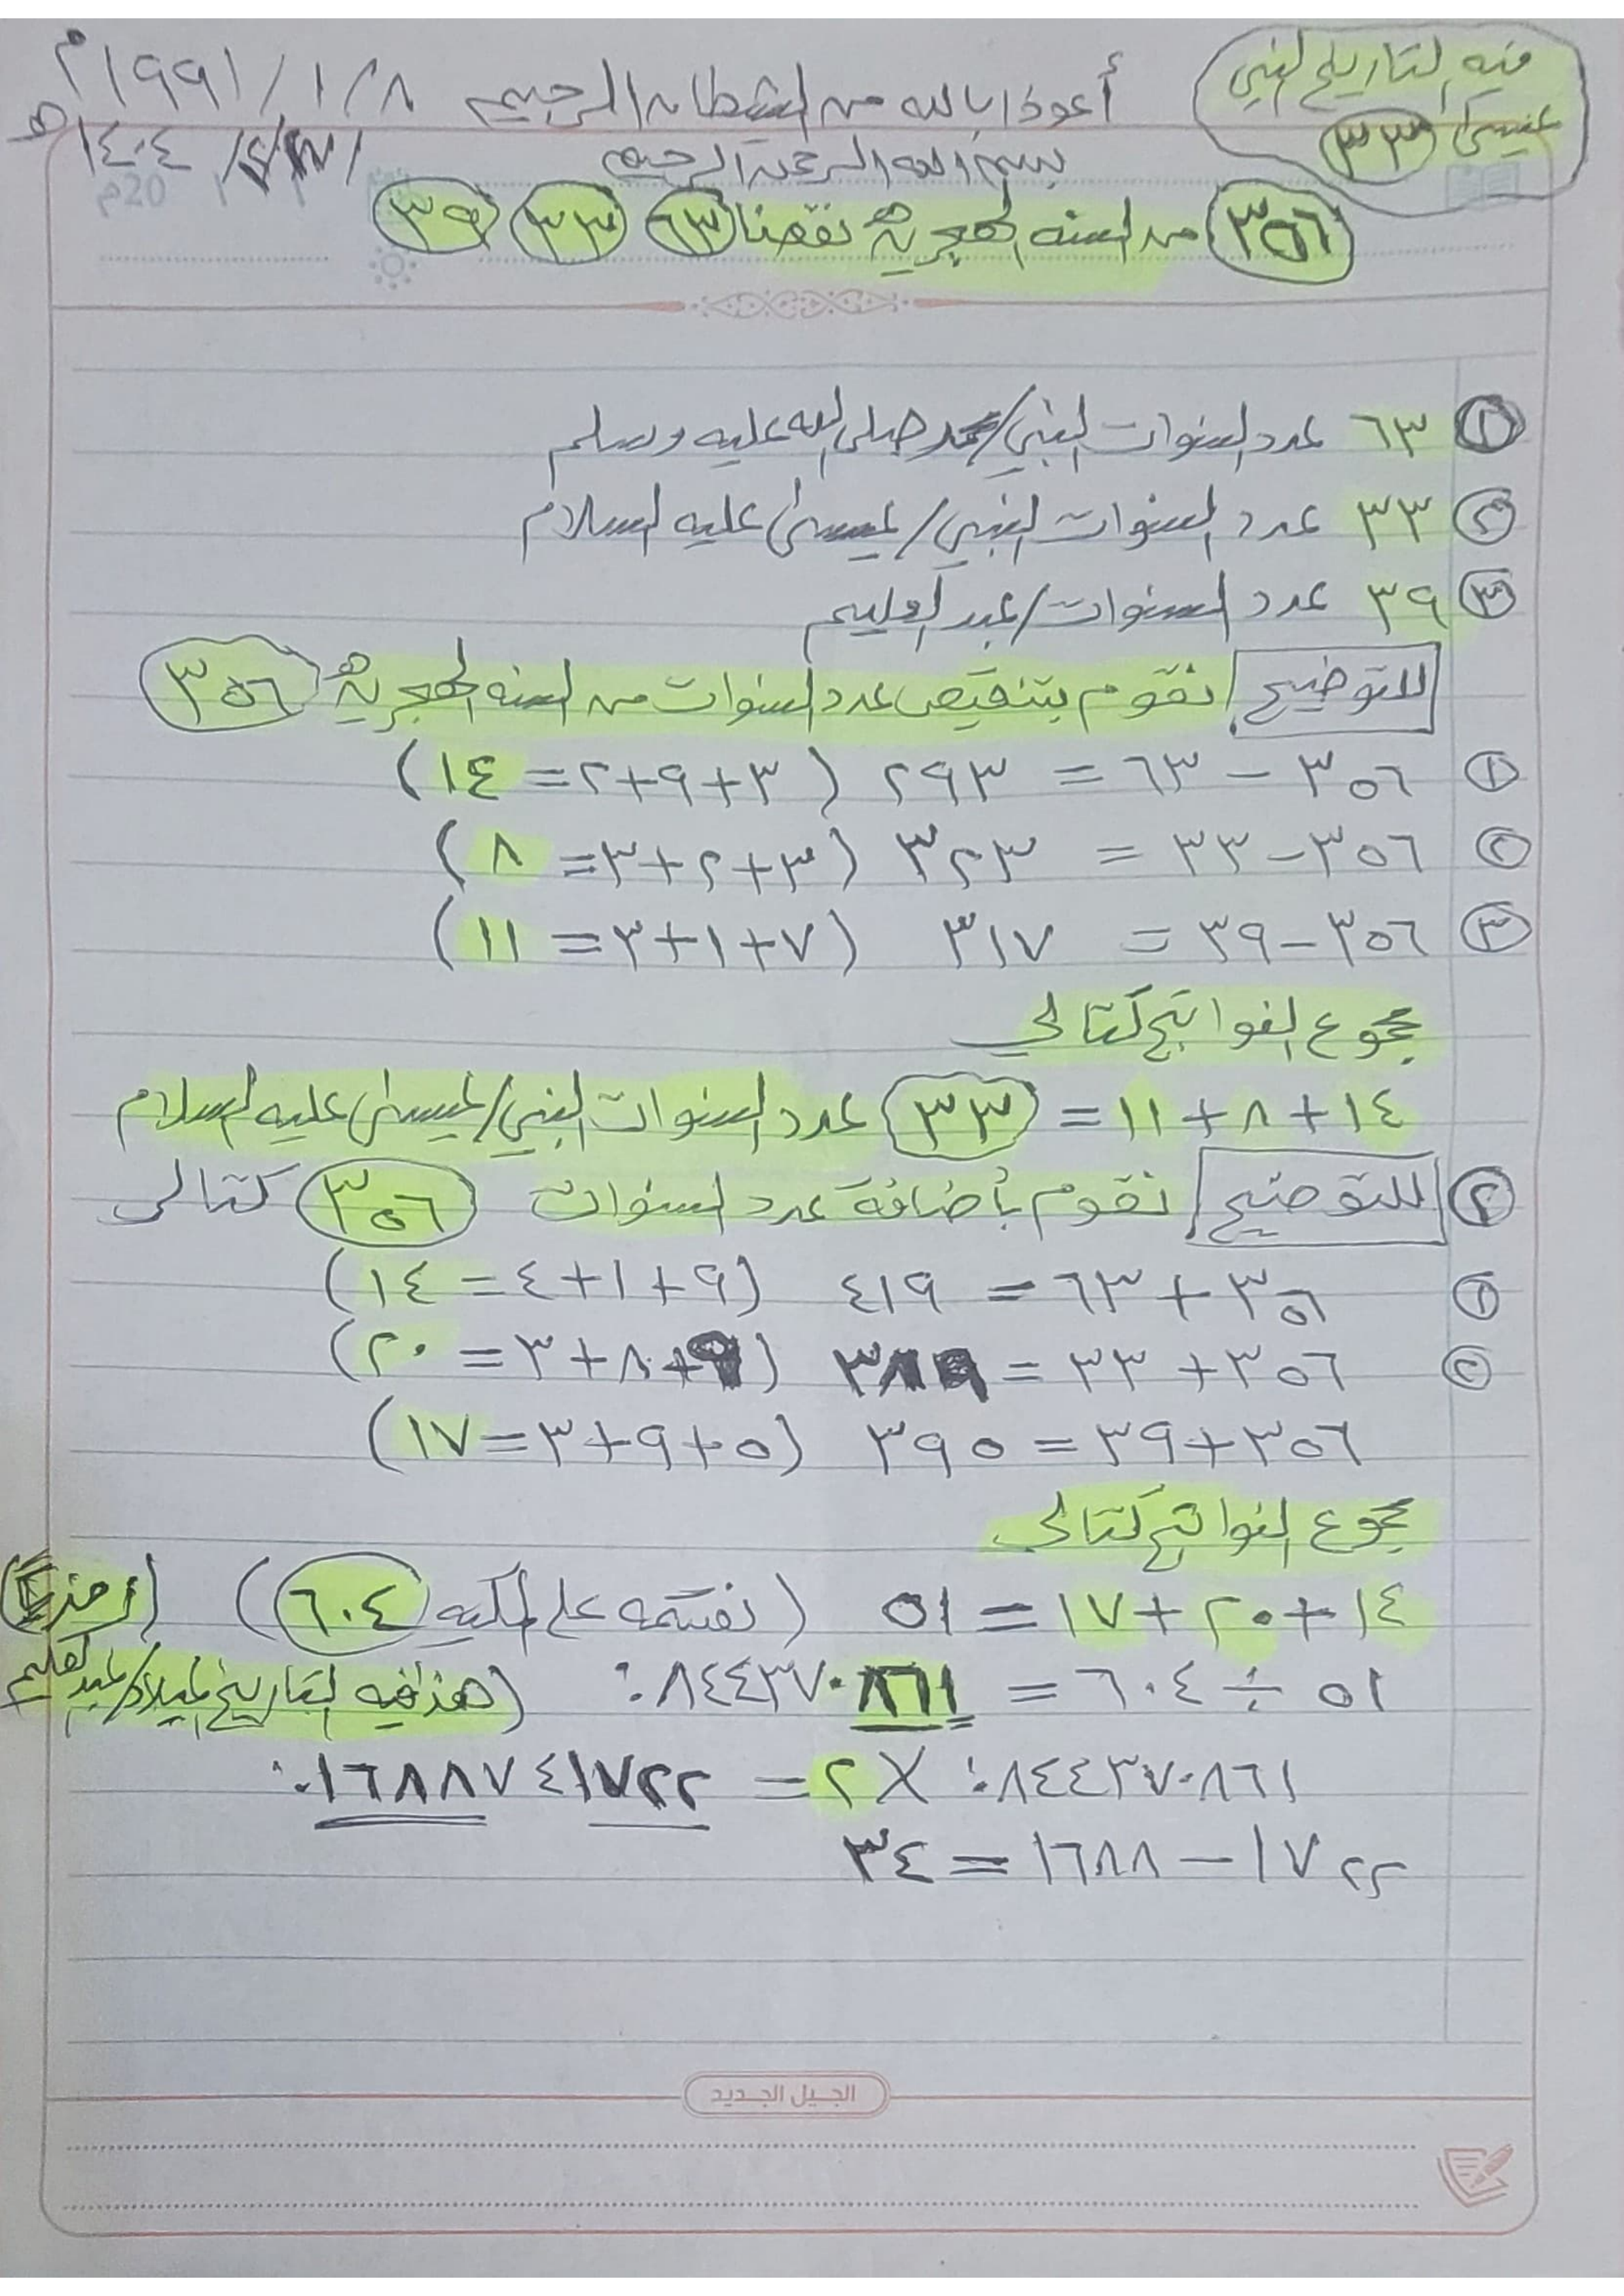 فيه التاريخ النبي
عيسى ٣٣
أعوذ بالله من الشيطان الرجيم
١٩٩١/١/٨م
بسم الله الرحمن الرحيم
١٤٠٤هـ
٣٥٦ من السنه الهجرية نقصنا ٦٣ ٣٣ ٣٩
١ ٦٣ عدد السنوات النبي/محمد صلى الله عليه وسلم
٢ ٣٣ عدد السنوات النبي/عيسى عليه السلام
٣ ٣٩ عدد السنوات/عبد العليم
للتوضيح نقوم بتنقيص عدد السنوات من السنه الهجرية ٣٥٦
١ ٣٥٦ - ٦٣ = ٢٩٣ (٣+٩+٢=١٤)
٢ ٣٥٦ - ٣٣ = ٣٢٣ (٣+٢+٣=٨)
٣ ٣٥٦ - ٣٩ = ٣١٧ (٧+١+٣=١١)
مجموع النواتج كتالي
١٤+٨+١١ = ٣٣ عدد السنوات النبي/عيسى عليه السلام
٢ للتوضيح نقوم بأضافة عدد السنوات ٣٥٦ كتالي
١ ٣٥٦ + ٦٣ = ٤١٩ (٩+١+٤=١٤)
٢ ٣٥٦ + ٣٣ = ٣٨٩ (٩+٨+٣=٢٠)
٣٥٦ + ٣٩ = ٣٩٥ (٥+٩+٣=١٧)
مجموع النواتج كتالي
١٤+٢٠+١٧ = ٥١ (نقسمه على المكيه ٦٠٤)
٥١ ÷ ٦٠٤ = ٠.٠٨٤٤٣٧٠٨٦١ (هذا فيه التاريخ الميلاد/عبد العليم
٠.٠٨٤٤٣٧٠٨٦١ × ٢ = ٠.١٦٨٨٧٤١٧٢٢
١٧٢٢ - ١٦٨٨ = ٣٤
الجيل الجديد